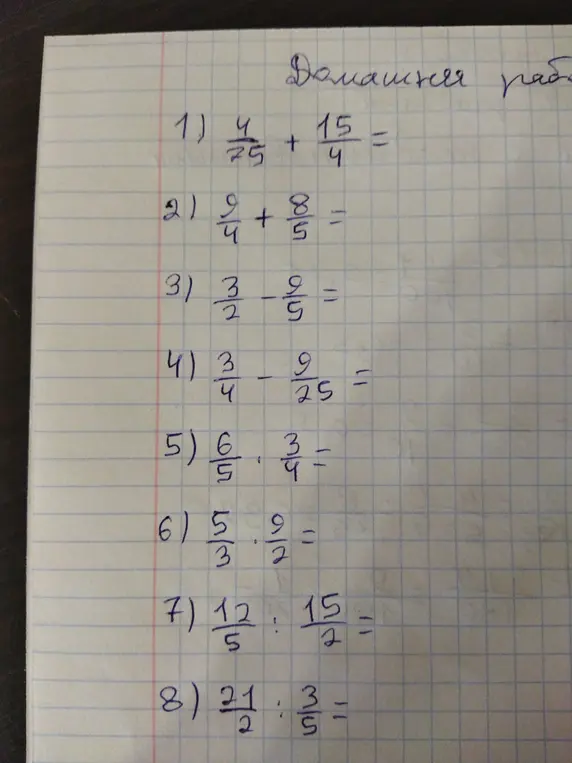 Домашняя
1) 4/25 + 15/4 =
2) 9/4 + 8/5 =
3) 3/2 - 9/5 =
4) 3/4 - 9/25 =
5) 6/5 · 3/4 =
6) 5/3 · 9/2 =
7) 12/5 : 15/2 =
8) 21/2 : 3/5 =